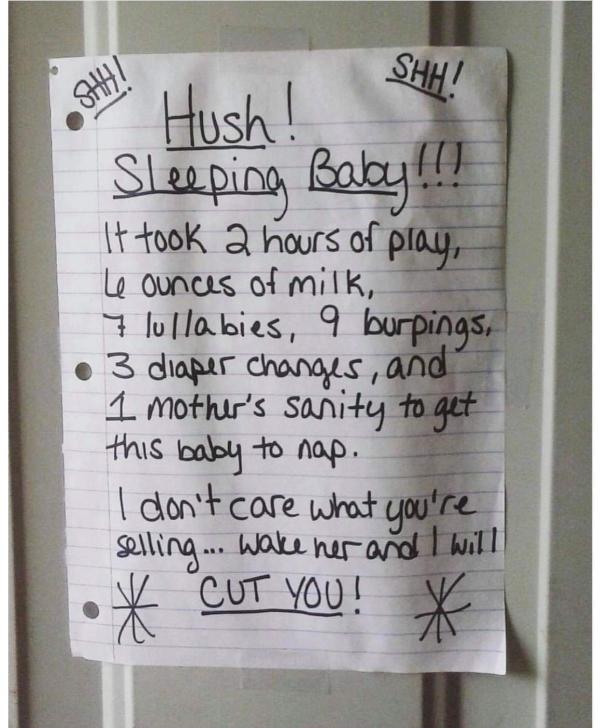 SHH! SHH!
Hush!
Sleeping Baby!!!
It took 2 hours of play,
6 ounces of milk,
7 lullabies, 9 burpings,
3 diaper changes, and
1 mother's sanity to get
this baby to nap.
I don't care what you're
selling... wake her and I will
CUT YOU!